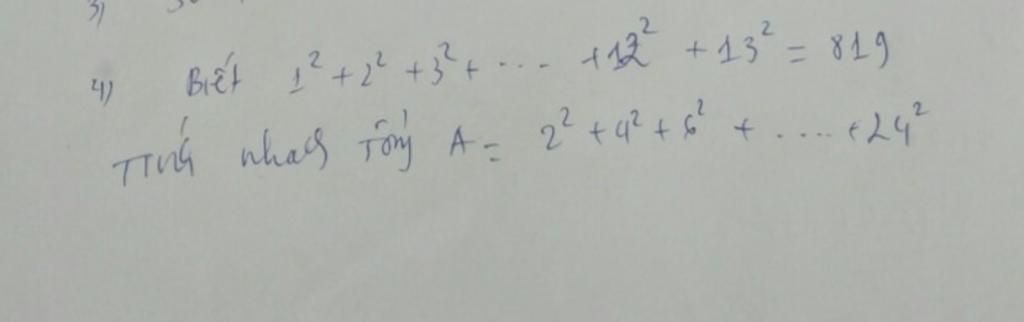 3)
4) Biết 1² + 2² + 3² + ... + 12² + 13² = 819
Tính nhanh Tổng A = 2² + 4² + 6² + .... + 24²